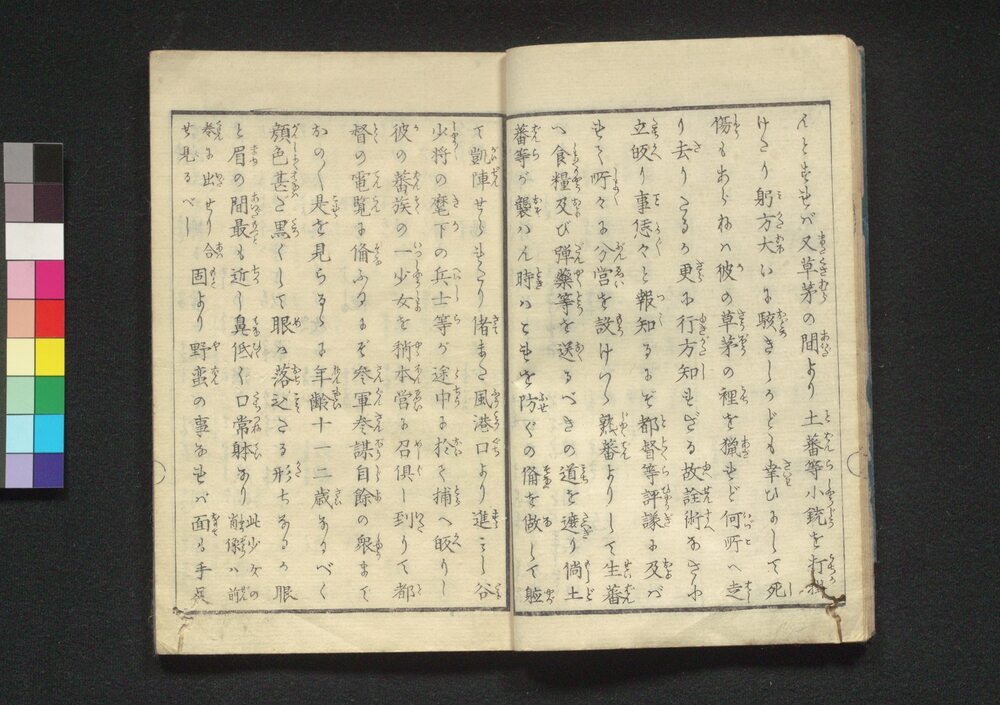 んとすれバ又草茅の間より土番等小銃を打
けさり躬方大いに駭きしかども幸ひにして死
傷もあらねバ彼の草茅の裡を猟れど何所へ走
り去りたるか更に行方知れざる故詮術なさに
立皈り事悉々と報知るにぞ都督等評議に及バ
れて所々に分営を設けつゝ熟蕃よりして生蕃
へ食糧及び弾藥等を送るべきの道を遮り倘土
蕃等が襲ハん時ハとれを防ぐの俻を做して
て凱陣せられたり偖また風港口より進みし谷
少将の麾下の兵士等が途中に於て捕へ皈りし
彼の蕃族の一少女を稍本営に召倶し到りて都
督の電覧に俻ふるにぞ参軍参謀自餘の衆まで
おのく是を見らるゝに年齢十一二歳なるべく
顔色甚だ黒くして眼ハ落込たる形ちなるが眼
と眉の間最も近し鼻低く口常躰なり 此少女の肖像ハ前
巻に出せり合せ見るべし 固より野蛮の事なれバ面る手足